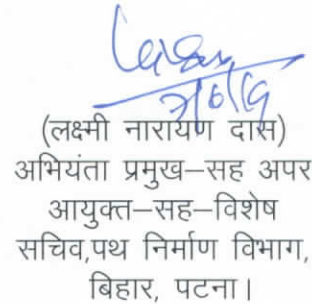 (लक्ष्मी नारायण दास)
अभियंता प्रमुख–सह अपर
आयुक्त–सह–विशेष
सचिव,पथ निर्माण विभाग,
बिहार, पटना।